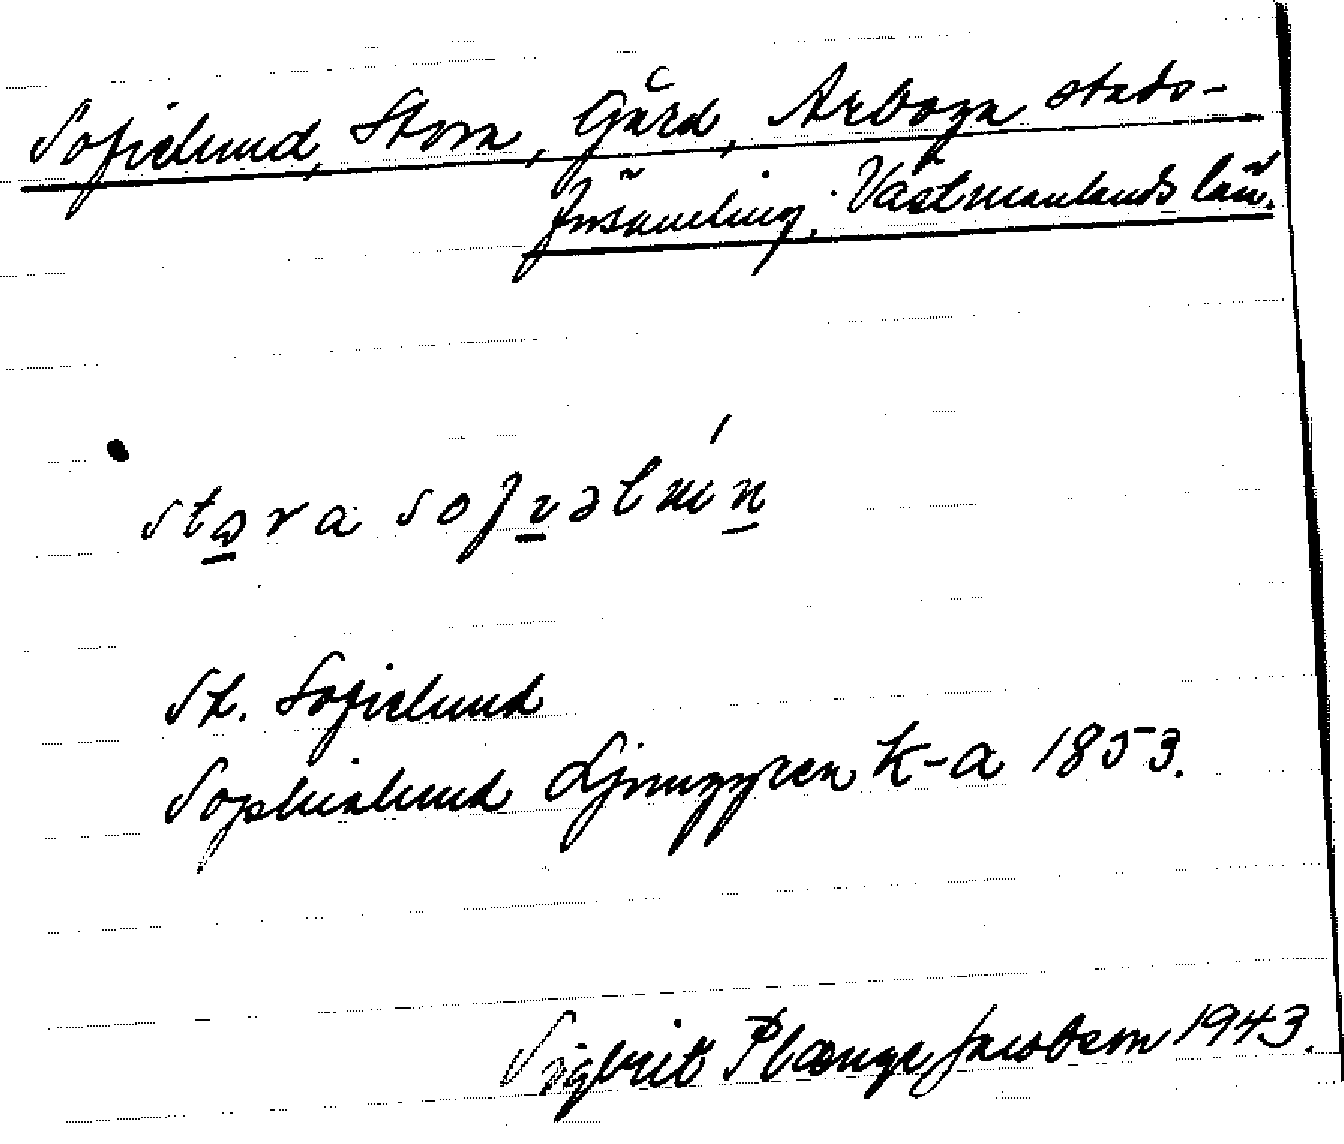 Sofielund, Stora, Gård, Arboga stads-
församling, Västmanlands län.
stora sofiəlún
St. Sofielund
Sophielund Ljunggren K-a 1853.
Sigbrit Plænge Jacobson 1943.